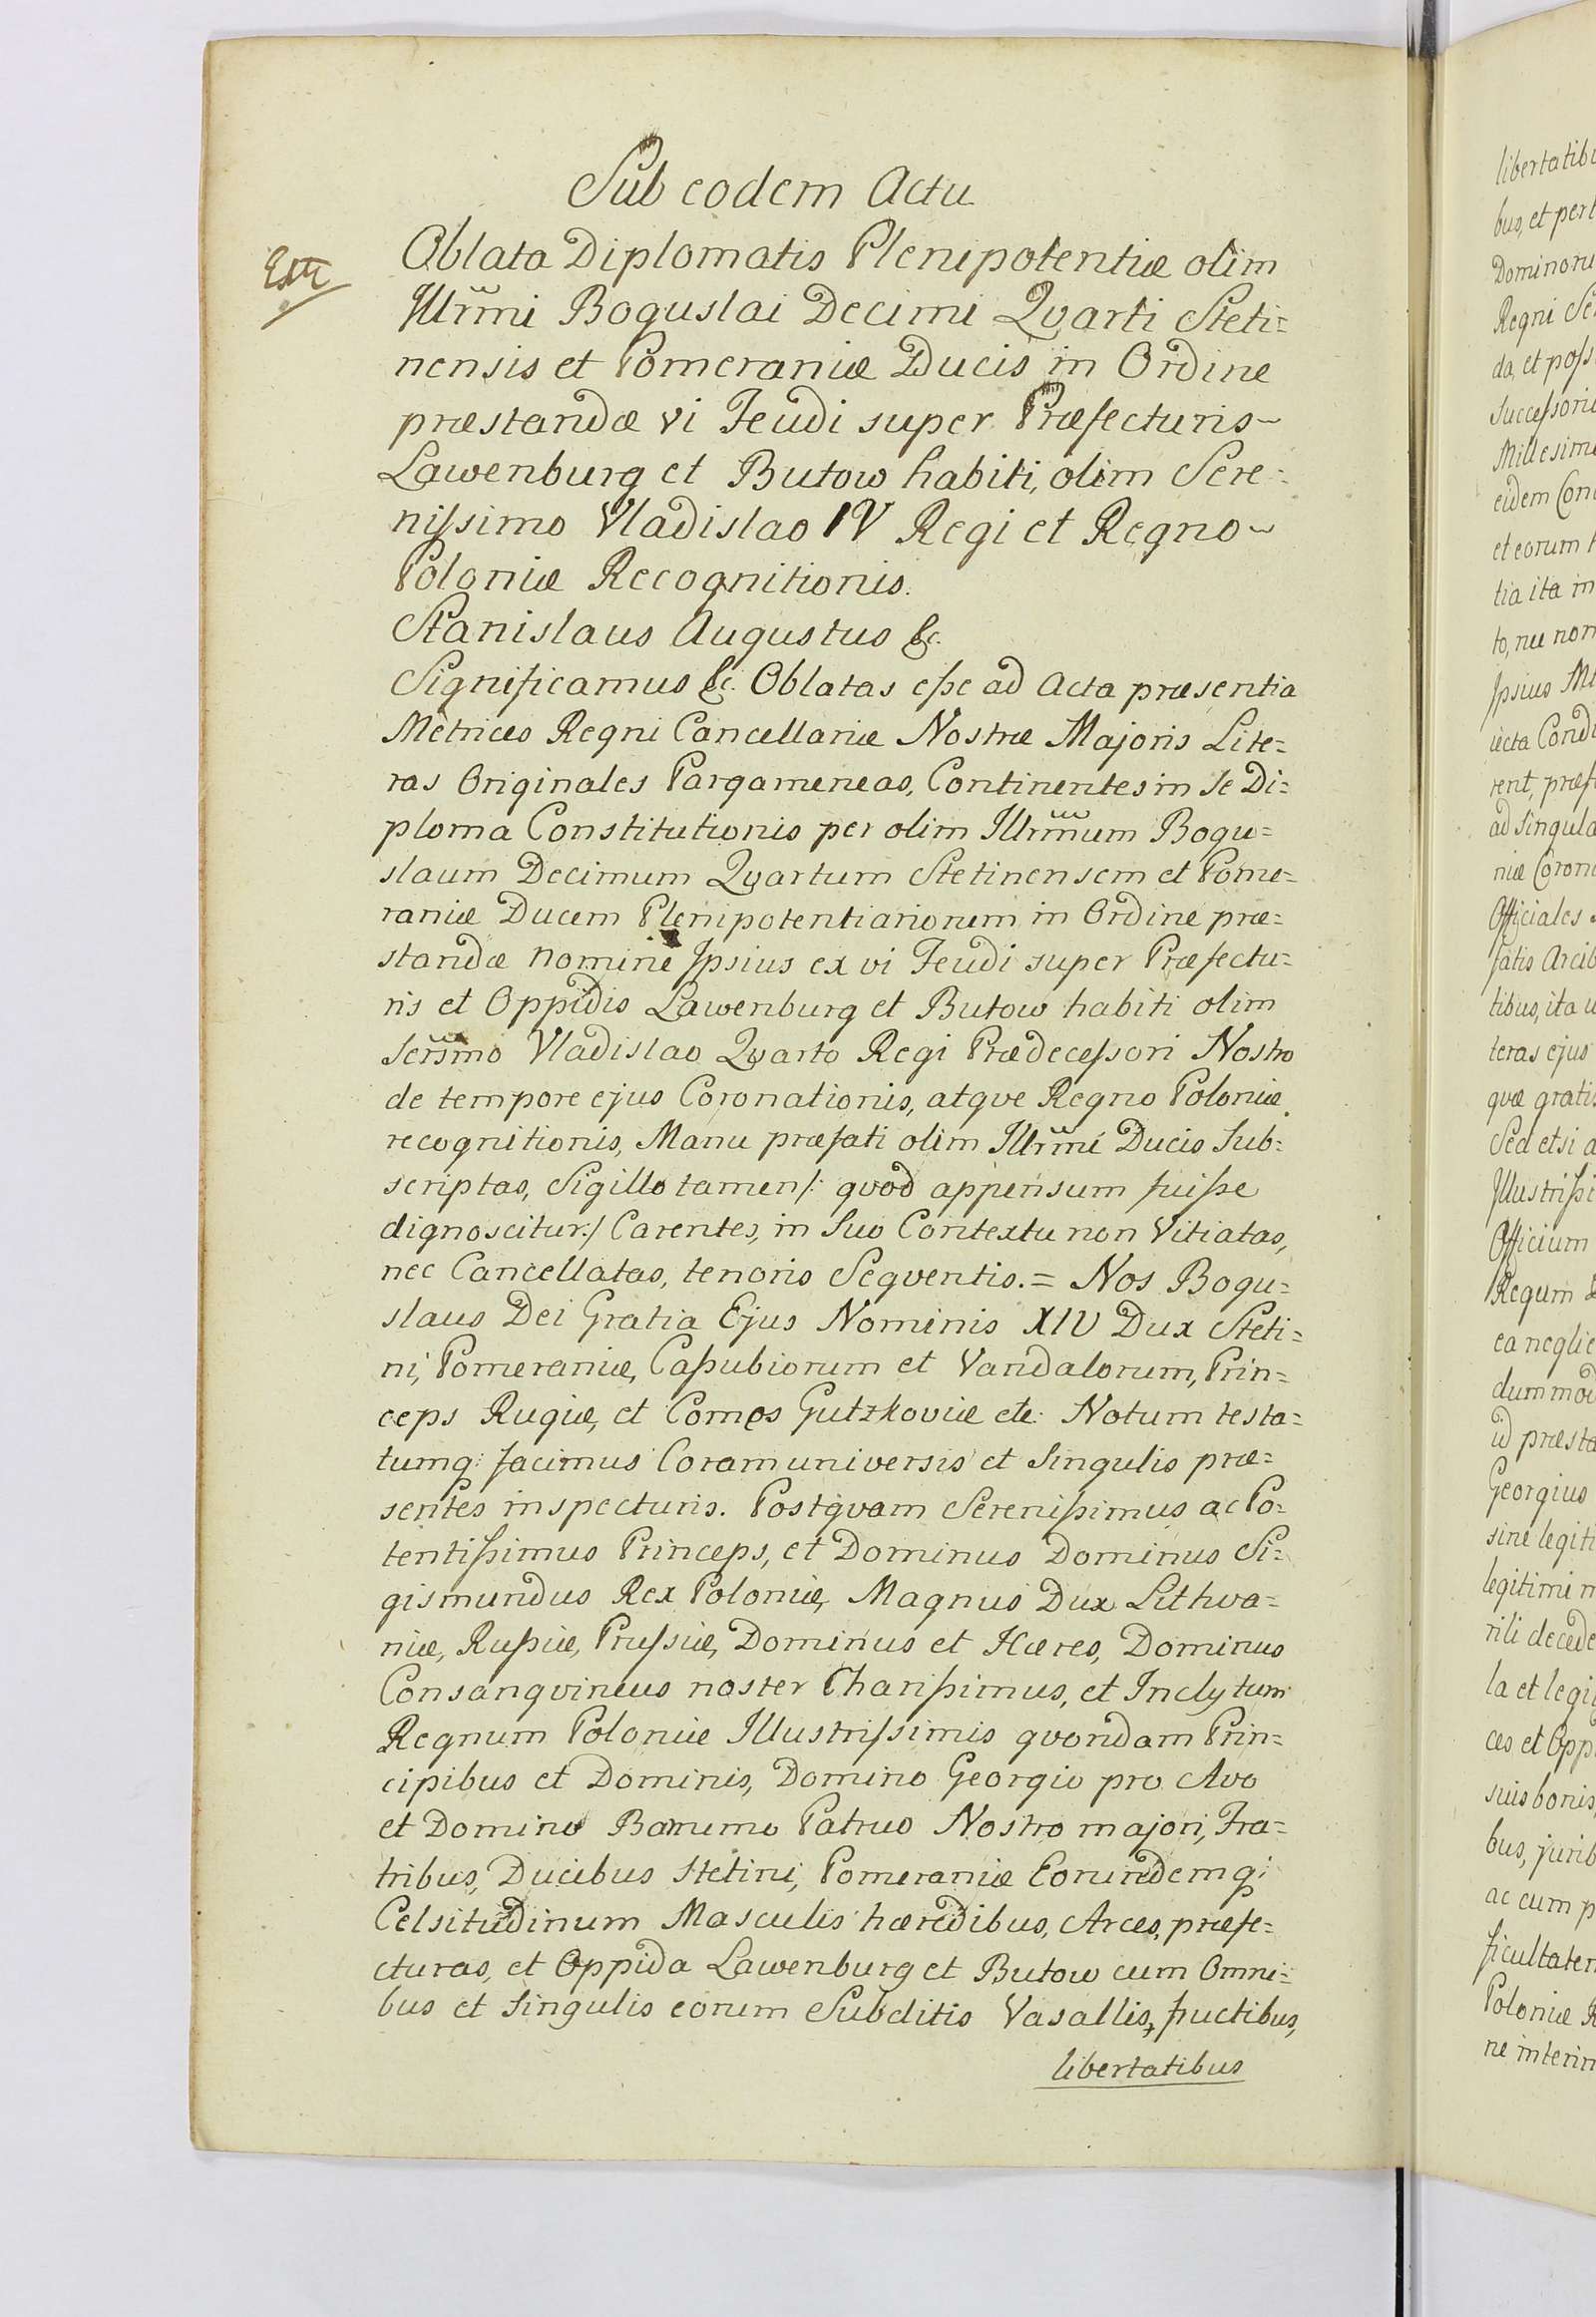 Sub eodem Actu
Oblata Diplomatis Plenipotentiæ olim
Illrmi Boguslai Decimi Qvarti Steti=
nensis et Pomeraniæ Ducis in Ordine
præstandæ vi Feudi super Præfecturis
Lawenburg et Butow habiti, olim Sere=
nissimo Vladislao IV Regi et Regno
Poloniæ Recognitionis.
Stanislaus Augustus &c.
Significamus &c. Oblatas esse ad Acta præsentia
Metrices Regni Cancellariæ Nostræ Majoris Lite=
ras Originales Pargameneas, Continentes in se Di=
ploma Constitutionis per olim Illrmum Bogu=
slaum Decimum Qvartum Stetinensem et Pome=
raniæ Ducem Plenipotentiariorum in Ordine præ=
standæ nomine Ipsius ex vi Feudi super Præfectu=
ris et Oppidis Lawenburg et Butow habiti olim
Serssmo Vladislao Qvarto Regi Prædecessori Nostro
de tempore ejus Coronationis, atqve Regno Poloniæ
recognitionis, Manu præfati olim Illrmi Ducis Sub=
scriptas, Sigillo tamen /: qvod appensum fuisse
dignoscitur :/ Carentes, in Suo Contextu non Vitiatas,
nec Cancellatas, tenoris Seqventis. = Nos Bogu=
slaus Dei Gratia Ejus Nominis XIV Dux Steti=
ni, Pomeraniæ, Cassubiorum et Vandalorum, Prin=
ceps Rugiæ, et Comes Gutzkoviæ etc: Notum testa=
tumq: facimus Coram universis et Singulis præ=
sentes inspecturis. Postqvam Serenissimus ac Po=
tentissimus Princeps, et Dominus Dominus Si=
gismundus Rex Poloniæ, Magnus Dux Lithva=
niæ, Russiæ, Prussiæ, Dominus et Hæres, Dominus
Consangvineus noster Charissimus, et Inclytum
Regnum Poloniæ Illustrissimis qvondam Prin=
cipibus et Dominis, Domino Georgio pro Avo
et Domino Barnimo Patruo Nostro majori, Fra=
tribus, Ducibus Stetini, Pomeraniæ Eorundemq:
Celsitudinum Masculis hæredibus, Arces, præfe=
cturas, et Oppida Lawenburg et Butow cum Omni=
bus et singulis eorum Subditis Vasallis, fructibus,
libertatibus
libertatibu
bus, et pert
Dominoru
Regni Se
da, et poss
Successoriu
Millesimo
eidem Con
et eorum
tia ita in
to, nec non
Ipsius
iecta Condi
rent, præf
ad singula
niæ Coron
Officiales
fatis Arcib
tibus, ita u
teras ejus
qvæ gratis
Sed etsi a
Illustrissi
Officium
Regum
ea neglie
dummod
id præsta
Georgius
sine legiti
legitimi m
rili decede
la et legi
ces et Opp
suis bonis
bus, jurib
ac cum p
ficultatem
Poloniæ R
ne interim